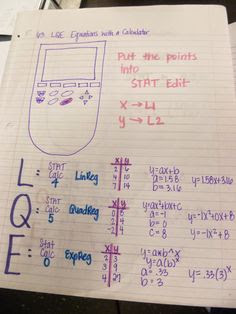 6.3 LQE Equations with a Calculator
Put the points
into
STAT Edit
X → L1
y → L2
L:
STAT
Calc
4
LinReg
X y
2 6
4 10
7 14
y=ax+b
a=1.58
b=3.16
y=1.58x+3.16
Q:
STAT
Calc
5
QuadReg
X y
0 8
2 4
-2 4
y=ax²+bx+c
a=-1
b=0
c=8
y=-1x²+0x+8
y=-1x²+8
E:
Stat
Calc
0
ExpReg
X y
2 3
3 9
4 27
y=a*b^x
y=a(b)ˣ
a=.33
b=3
y=.33(3)ˣ